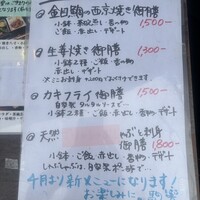 金目鯛の西京焼き御膳 1,500-
小鉢・茶碗蒸し・香の物
ご飯・赤出し・デザート
生姜焼き御膳 1,300-
小鉢2種・ご飯・香の物
赤出し・デザート
カキフライ御膳 1,500-
自家製タルタルソースで
小鉢2種・ご飯・赤出し・香の物・デザート
天然 ぶとお刺身
御膳 1,800-
小鉢・ご飯・赤出し・香物・デザート
4月より新メニューになります!
お楽しみに